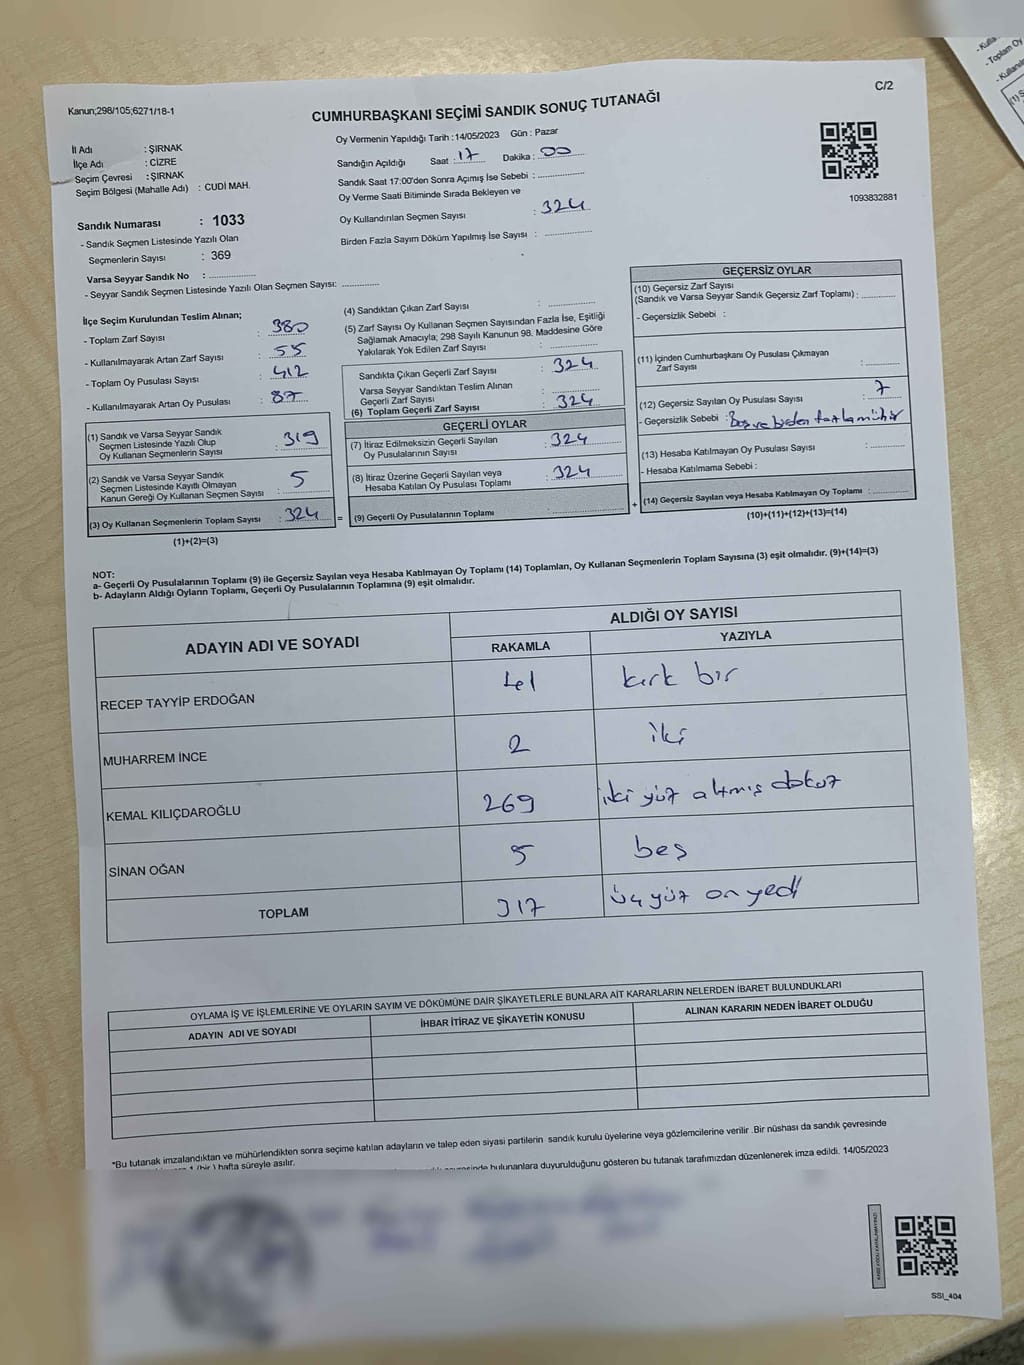 C/2
Kanun;298/105;6271/18-1
CUMHURBAŞKANI SEÇİMİ SANDIK SONUÇ TUTANAĞI
İl Adı : ŞIRNAK
İlçe Adı : CİZRE
Seçim Çevresi : ŞIRNAK
Seçim Bölgesi (Mahalle Adı) : CUDİ MAH.
Oy Vermenin Yapıldığı Tarih : 14/05/2023 Gün : Pazar
Sandığın Açıldığı Saat : 17 Dakika : 00
Sandık Saat 17:00'den Sonra Açımış İse Sebebi :
Oy Verme Saati Bitiminde Sırada Bekleyen ve
Oy Kullandırılan Seçmen Sayısı : 324
Birden Fazla Sayım Döküm Yapılmış İse Sayısı :
1093832881
Sandık Numarası : 1033
- Sandık Seçmen Listesinde Yazılı Olan
Seçmenlerin Sayısı : 369
Varsa Seyyar Sandık No :
- Seyyar Sandık Seçmen Listesinde Yazılı Olan Seçmen Sayısı:
İlçe Seçim Kurulundan Teslim Alınan;
- Toplam Zarf Sayısı : 380
- Kullanılmayarak Artan Zarf Sayısı : 55
- Toplam Oy Pusulası Sayısı : 412
- Kullanılmayarak Artan Oy Pusulası : 87
(1) Sandık ve Varsa Seyyar Sandık
Seçmen Listesinde Yazılı Olup
Oy Kullanan Seçmenlerin Sayısı : 319
(2) Sandık ve Varsa Seyyar Sandık
Seçmen Listesinde Kayıtlı Olmayan
Kanun Gereği Oy Kullanan Seçmen Sayısı : 5
(3) Oy Kullanan Seçmenlerin Toplam Sayısı : 324
(1)+(2)=(3)
=
(4) Sandıktan Çıkan Zarf Sayısı :
(5) Zarf Sayısı Oy Kullanan Seçmen Sayısından Fazla İse, Eşitliği
Sağlamak Amacıyla; 298 Sayılı Kanunun 98. Maddesine Göre
Yakılarak Yok Edilen Zarf Sayısı :
Sandıkta Çıkan Geçerli Zarf Sayısı : 324
Varsa Seyyar Sandıktan Teslim Alınan
Geçerli Zarf Sayısı :
(6) Toplam Geçerli Zarf Sayısı : 324
GEÇERLİ OYLAR
(7) İtiraz Edilmeksizin Geçerli Sayılan
Oy Pusulalarının Sayısı : 324
(8) İtiraz Üzerine Geçerli Sayılan veya
Hesaba Katılan Oy Pusulası Toplamı : 324
(9) Geçerli Oy Pusulalarının Toplamı :
+
GEÇERSİZ OYLAR
(10) Geçersiz Zarf Sayısı
(Sandık ve Varsa Seyyar Sandık Geçersiz Zarf Toplamı) :
- Geçersizlik Sebebi :
(11) İçinden Cumhurbaşkanı Oy Pusulası Çıkmayan
Zarf Sayısı :
(12) Geçersiz Sayılan Oy Pusulası Sayısı : 7
- Geçersizlik Sebebi : Boş ve birden fazla mühür
(13) Hesaba Katılmayan Oy Pusulası Sayısı :
- Hesaba Katılmama Sebebi :
(14) Geçersiz Sayılan veya Hesaba Katılmayan Oy Toplamı :
(10)+(11)+(12)+(13)=(14)
NOT:
a- Geçerli Oy Pusulalarının Toplamı (9) ile Geçersiz Sayılan veya Hesaba Katılmayan Oy Toplamı (14) Toplamları, Oy Kullanan Seçmenlerin Toplam Sayısına (3) eşit olmalıdır. (9)+(14)=(3)
b- Adayların Aldığı Oyların Toplamı, Geçerli Oy Pusulalarının Toplamına (9) eşit olmalıdır.
ADAYIN ADI VE SOYADI
ALDIĞI OY SAYISI
RAKAMLA YAZIYLA
RECEP TAYYİP ERDOĞAN 41 kırk bir
MUHARREM İNCE 2 iki
KEMAL KILIÇDAROĞLU 269 iki yüz altmış dokuz
SİNAN OĞAN 5 beş
TOPLAM 317 üç yüz on yedi
OYLAMA İŞ VE İŞLEMLERİNE VE OYLARIN SAYIM VE DÖKÜMÜNE DAİR ŞİKAYETLERLE BUNLARA AİT KARARLARIN NELERDEN İBARET BULUNDUKLARI
ADAYIN ADI VE SOYADI İHBAR İTİRAZ VE ŞİKAYETİN KONUSU ALINAN KARARIN NEDEN İBARET OLDUĞU
*Bu tutanak imzalandıktan ve mühürlendikten sonra seçime katılan adayların ve talep eden siyasi partilerin sandık kurulu üyelerine veya gözlemcilerine verilir .Bir nüshası da sandık çevresinde
1 (bir ) hafta süreyle asılır.
bulunanlara duyurulduğunu gösteren bu tutanak tarafımızdan düzenlenerek imza edildi. 14/05/2023
SSI_404